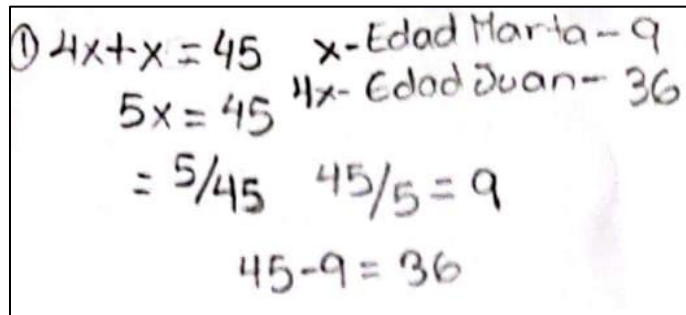 ① 4x+x = 45 x-Edad Marta - 9
5x = 45 4x- Edad Juan - 36
= 5/45 45/5 = 9
45-9 = 36